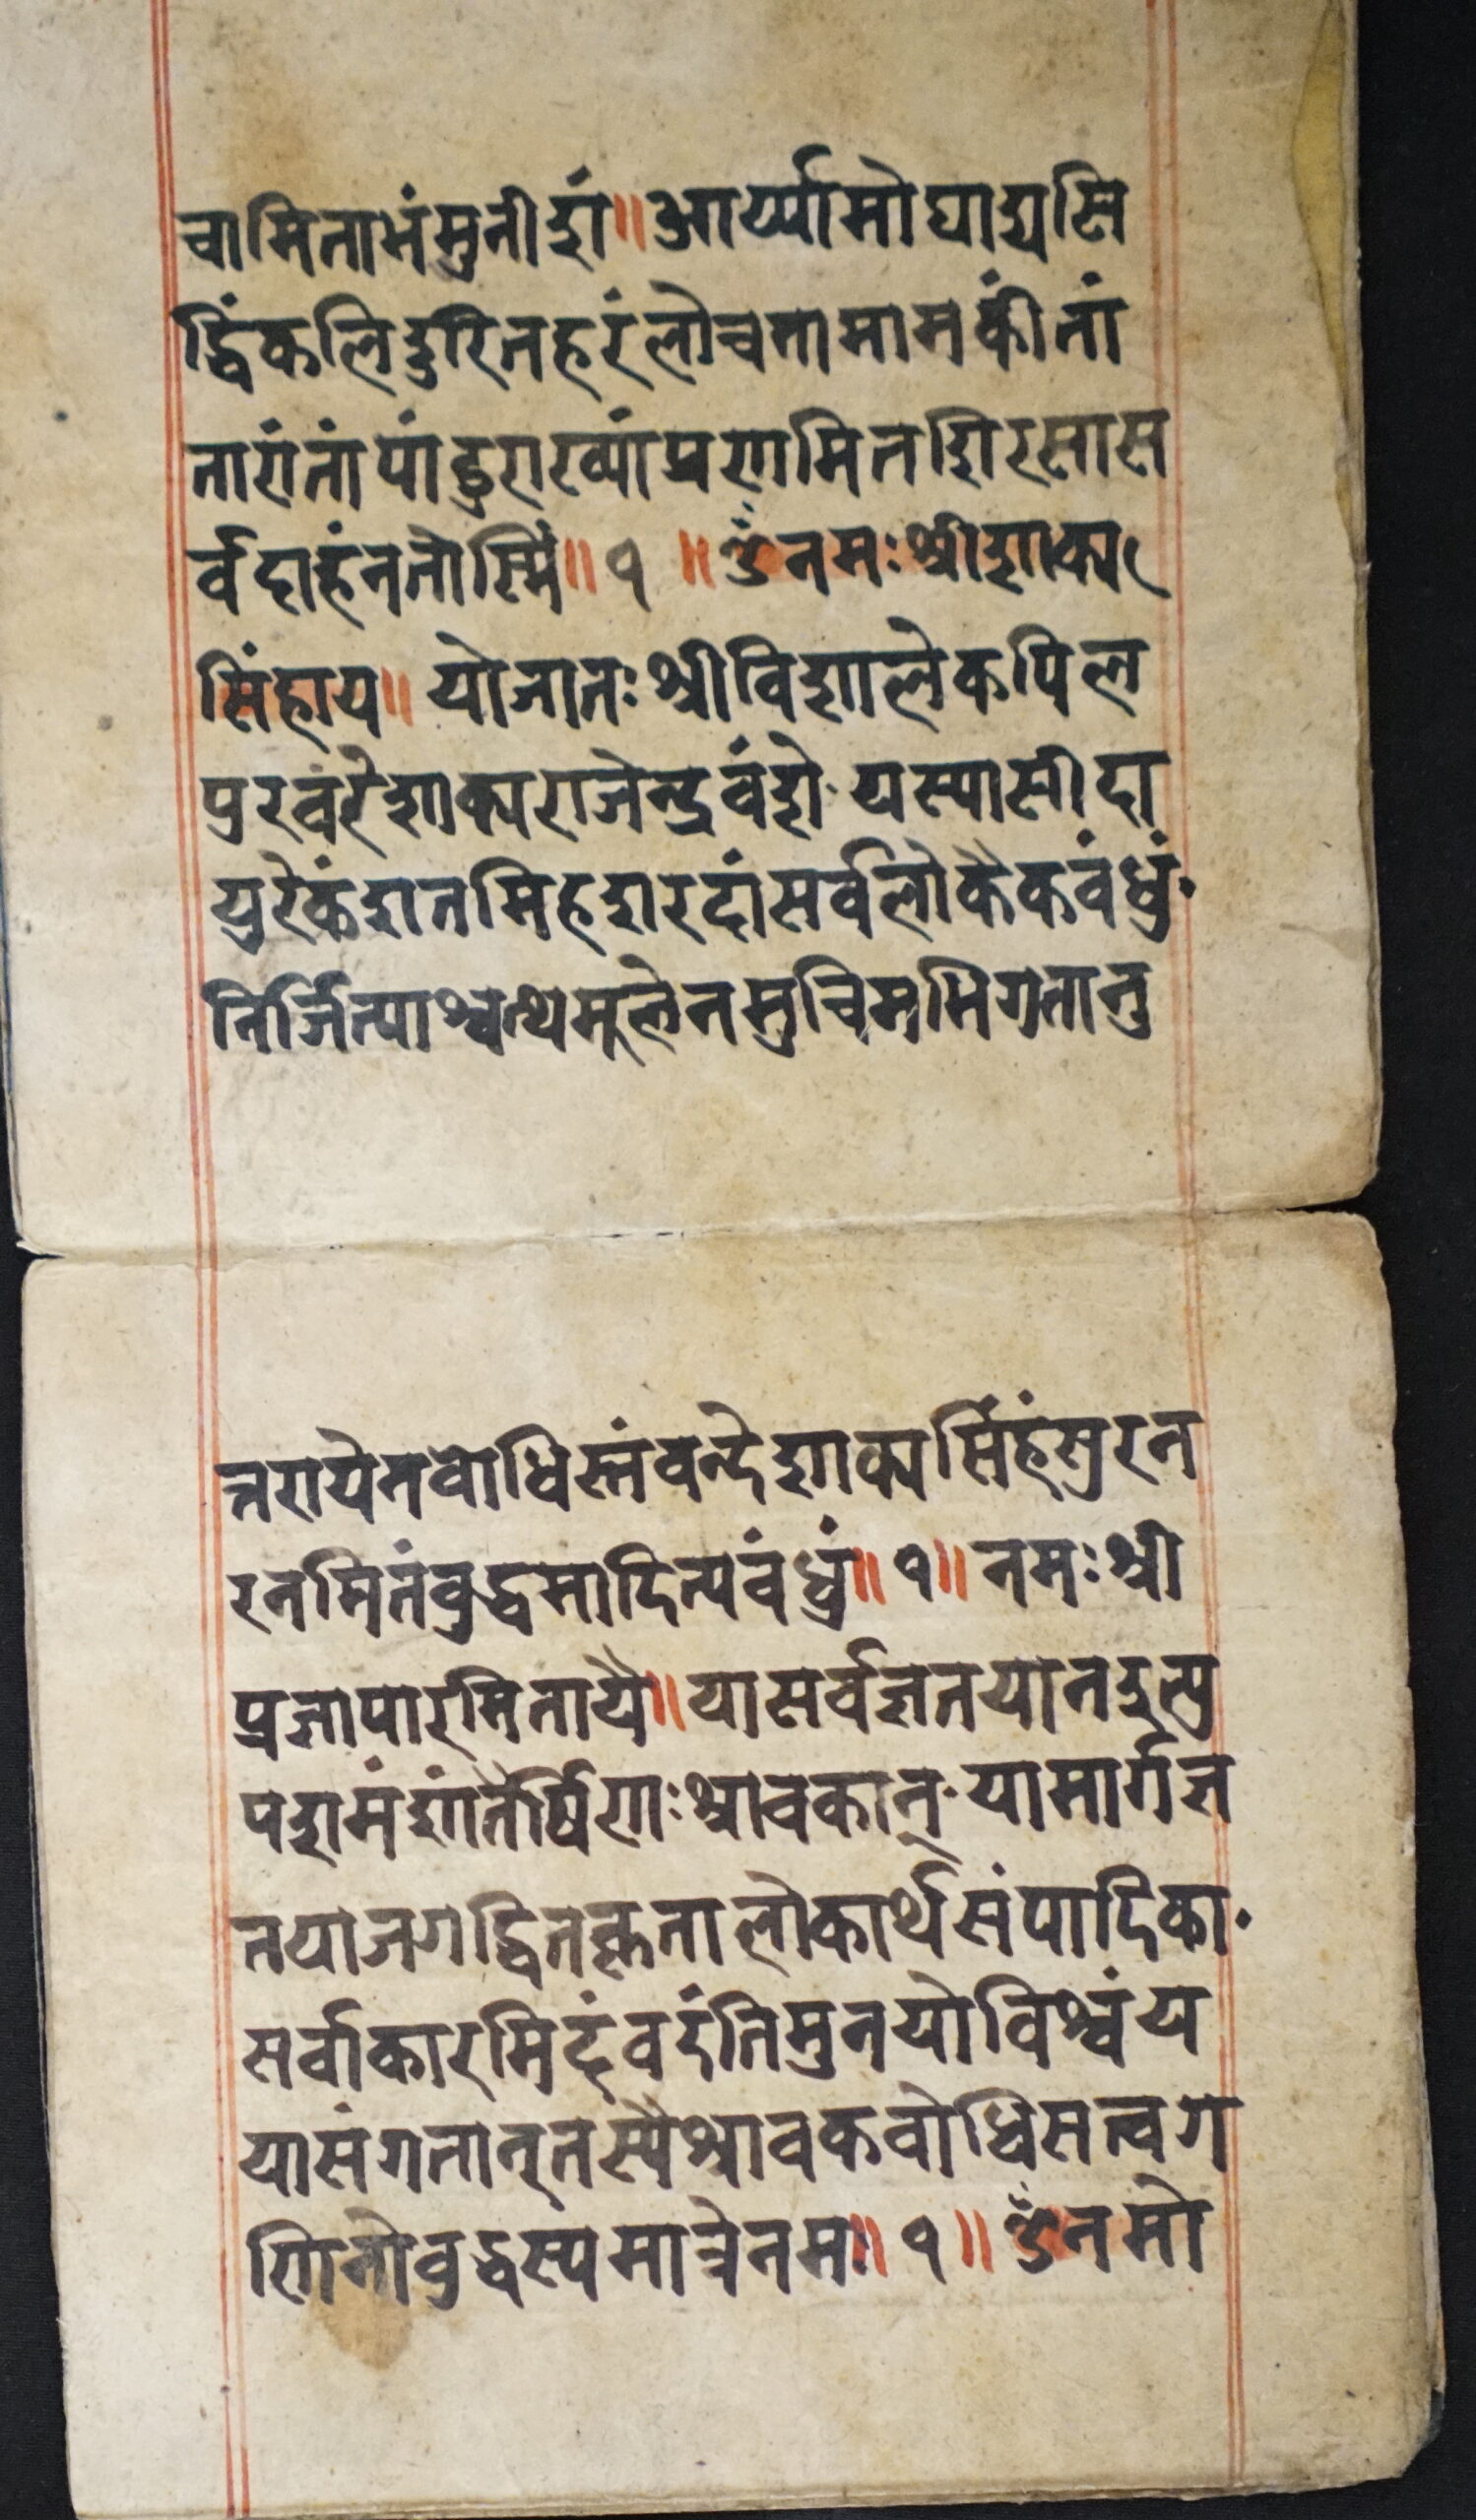 चामिताभंमुनीशं॥आर्य्यामोघाद्यसि
द्धिंकलिदुरितहरंलोचनामामकींतां
तारांतांपांडुराख्यांप्रणामितशिरसास
र्वदाहंनतोस्मिं॥१ ॥ॐनमःश्रीशाक्य
सिंहाय॥ योजातःश्रीविशालेकपिल
पुरवंरेशाक्यराजेन्द्रवंशे·यस्यासीदा
युरेकंशतमिहशरदांसर्वलोकैकवंधुं·
निर्जित्याश्वत्थमूलेनमुचिमभिगतानु
त्तरायेनवोधिस्तंवन्देशाक्यसिंहंसुरन
रनमितंवुद्धमादित्यवंधुं॥१॥नमःश्री
प्रज्ञापारमितायै॥यासर्वज्ञतयानदुत्यु
पशमंशांतैर्षिणःश्रावकान्·यामार्गज्ञ
तयाजगद्धितकृतालोकार्थसंपादिका·
सर्वाकारमिदंवदंतिमुनयोविश्वंय
यासंगतान्तस्यैश्रावकवोधिसत्वग
णिनोवुद्धस्यमात्रेनमः॥१॥ॐनमो